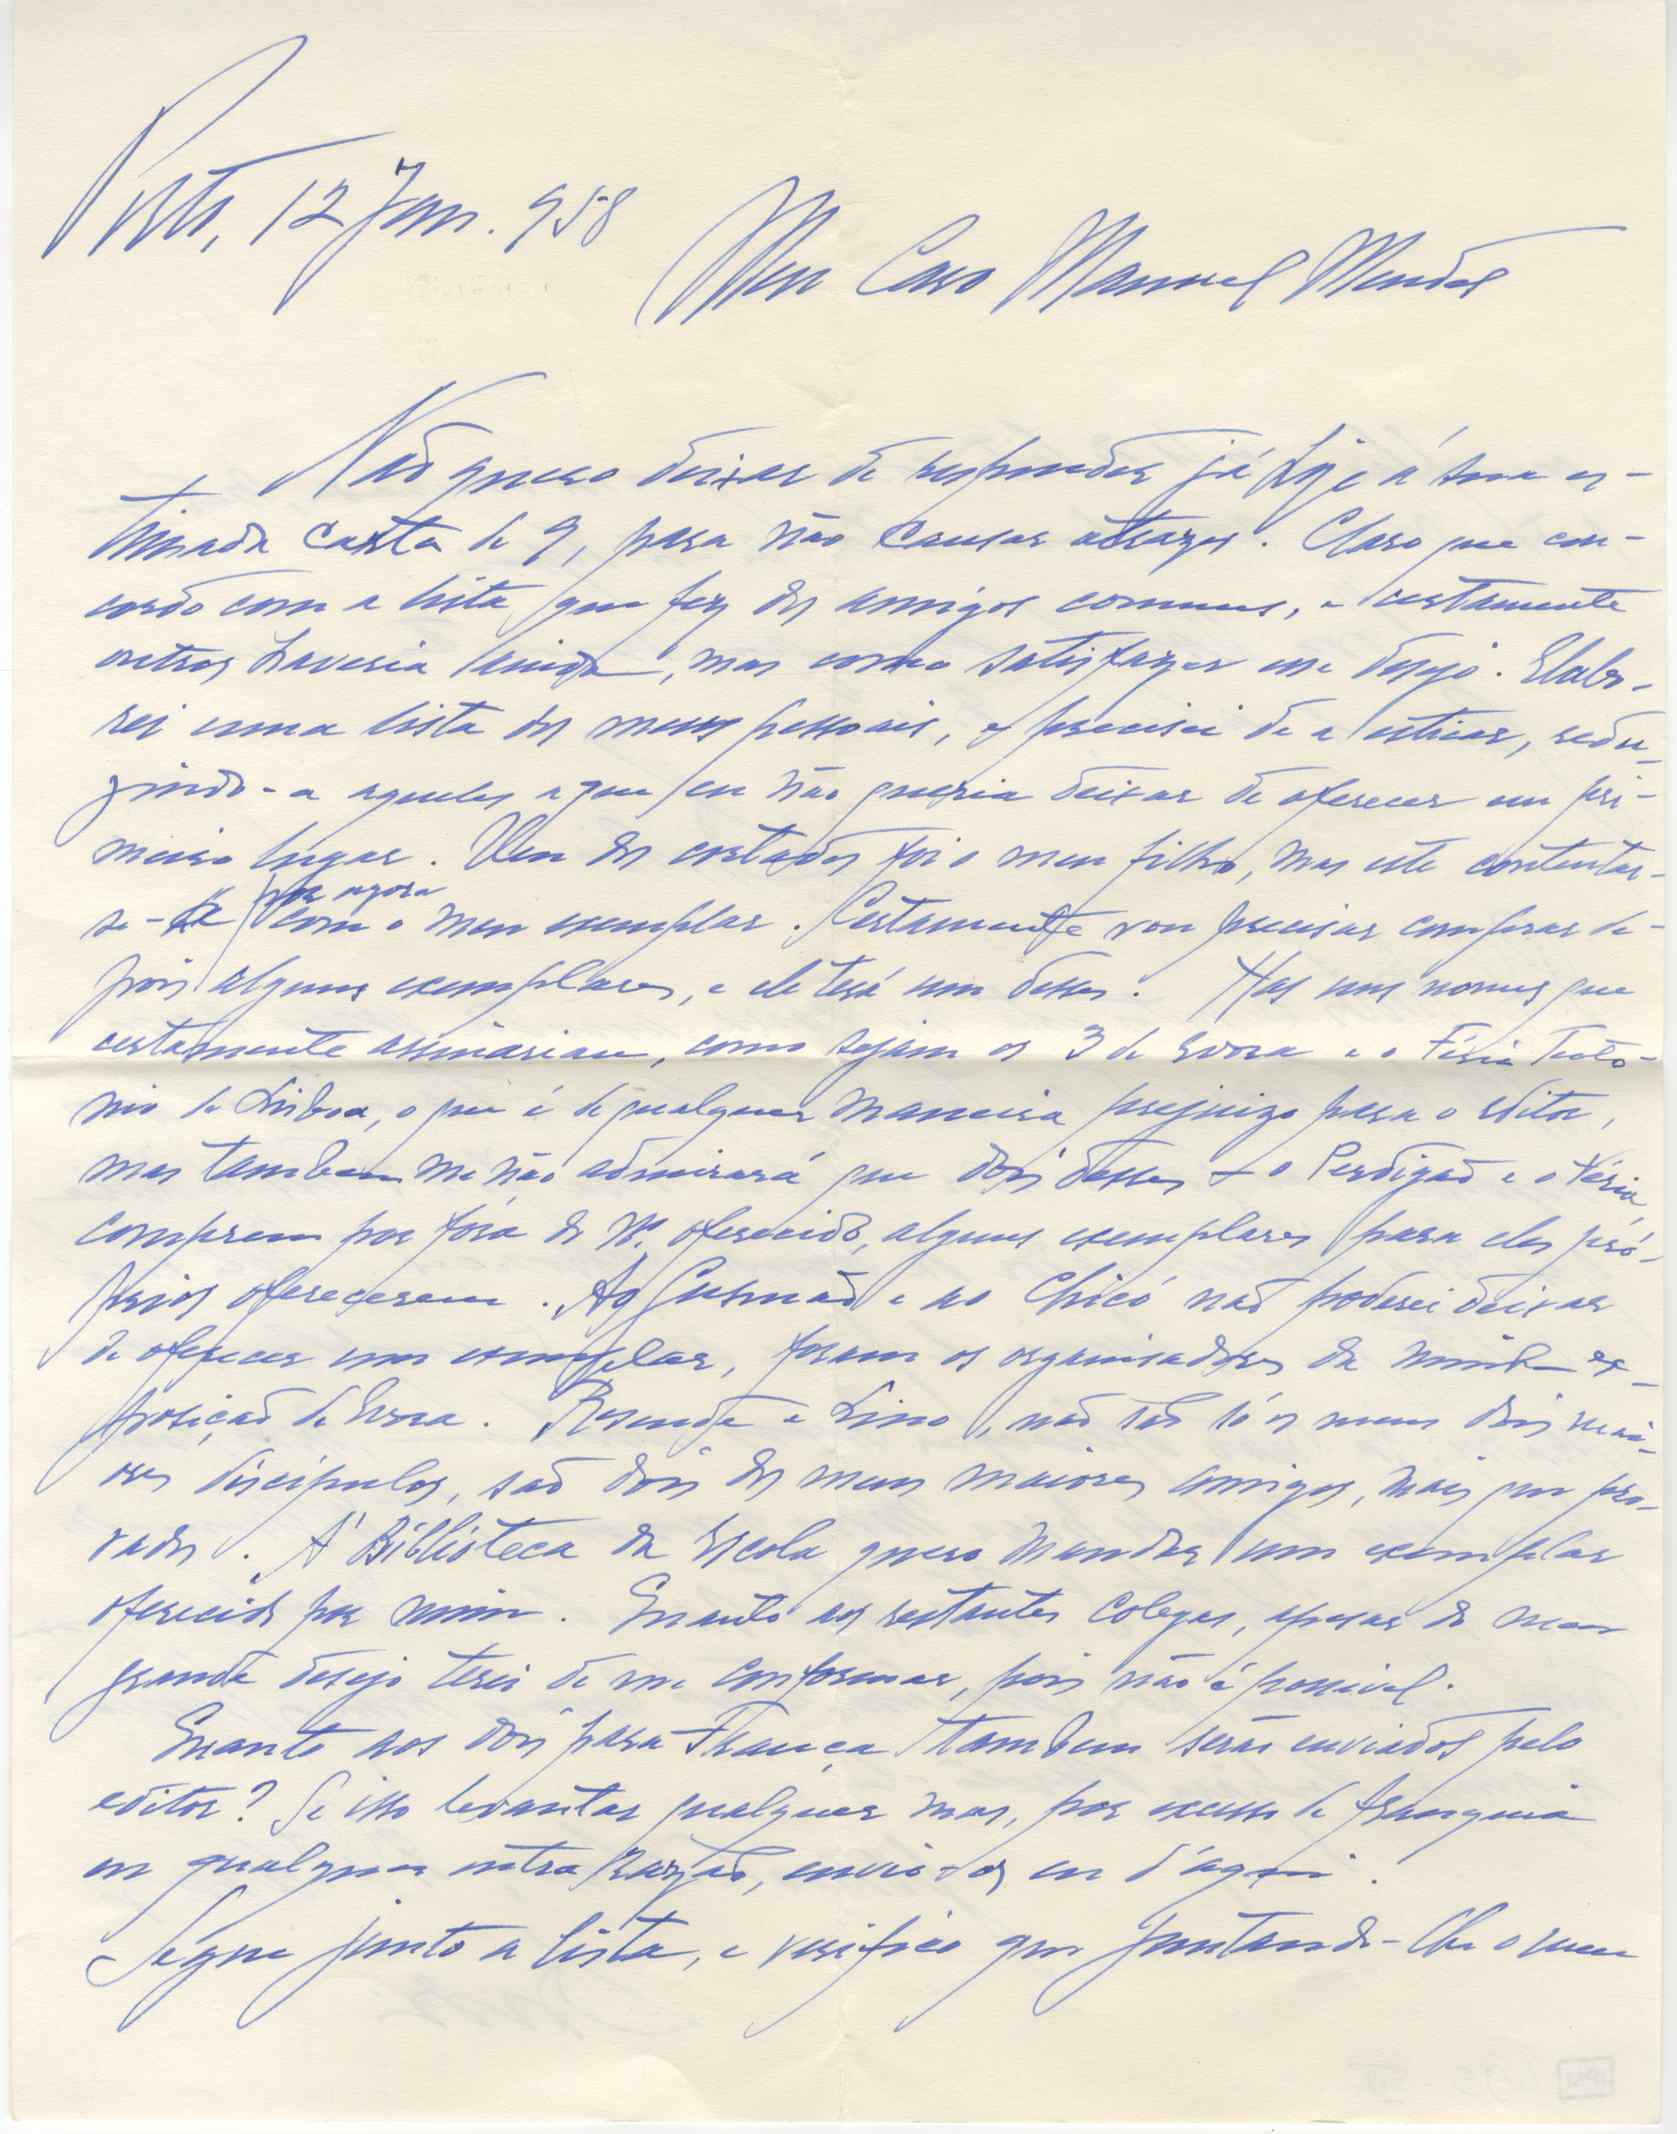 Porto, 12 Jan. 958
Meu Caro Manuel Mendes
Não quero deixar de responder já hoje á sua es-
timada carta de 9, para não causar atrazos. Claro que con-
cordo com a lista que fez dos amigos comuns, e certamente
outros haveria ainda, mas como satisfazer esse desejo. Elabo-
rei uma lista dos meus pessoais, e precisei de a esticar, redu-
zindo-a aqueles a que eu não queria deixar de oferecer em pri-
meiro lugar. Um dos cortados foi o meu filho, mas este contentar-
se-á por agora com o meu exemplar. Certamente vou precisar comprar de-
pois alguns exemplares, e ele terá um desses. Há uns nomes que
certamente assinariam, como sejam os 3 de Evora e o Féria Teoto-
nio de Lisboa, o que é de qualquer maneira prejuizo para o editor,
mas tambem me não admirará que dois desses – o Perdigão e o Féria,
comprem por fóra do Nº. oferecido, alguns exemplares para eles pró-
prios oferecerem. Ao Gusmão e ao Chicó não poderei deixar
de oferecer um exemplar, foram os organisadores da minha ex-
posição de Evora. Resende e Lino, não são só os meus dois mai-
ores discipulos, são dois dos meus maiores amigos, mais que pro-
vados. Á Biblioteca da Escola quero mandar um exemplar
oferecido por mim. Quanto aos restantes Colegas, apesar do meu
grande desejo terei de me conformar, pois não é possivel.
Quanto aos dois para França tambem serão enviados pelo
editor? Se isso levantar qualquer mas, por excesso de franquia
ou qualquer outra razão, envio-os eu d'aqui.
Segue junto a lista, e verifico que juntando-lhe o meu